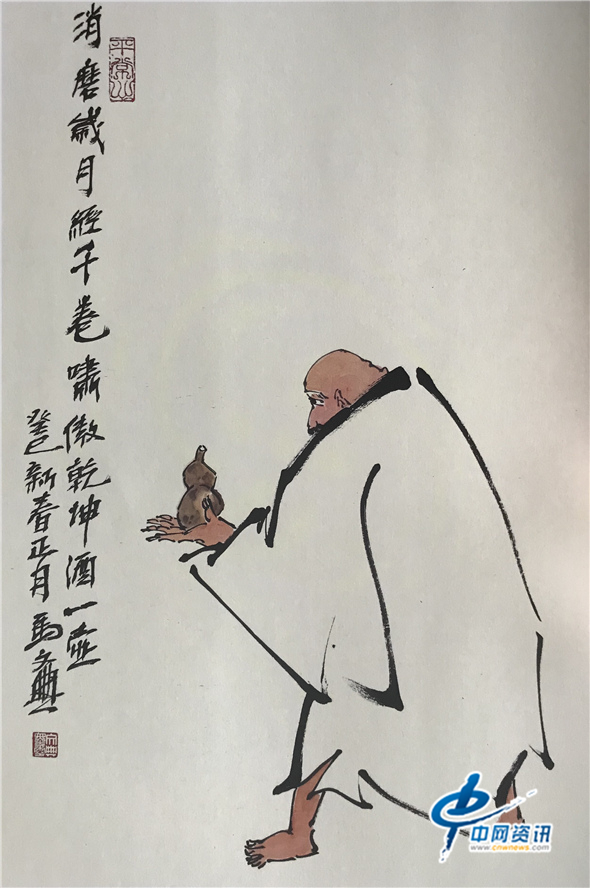 消磨歲月經千卷嘯傲乾坤酒一壺
癸巳新春正月馬文典
平常心
中网资讯
www.cnwnews.com